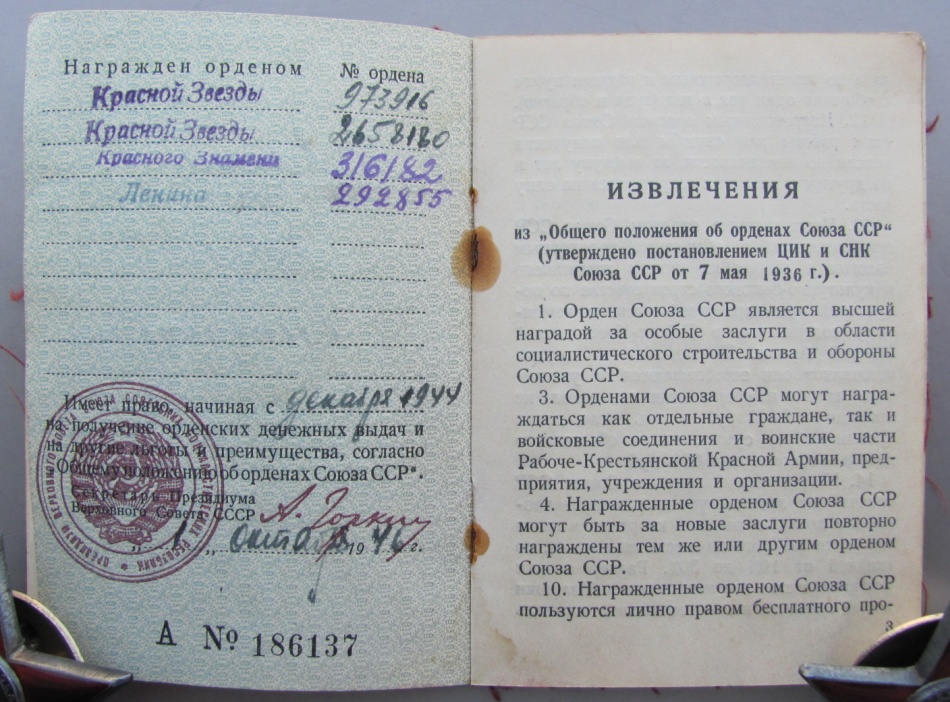 Награжден орденом № ордена
Красной Звезды 973916
Красной Звезды 2658180
Красного Знамени 316182
Ленина 292855
Имеет право, начиная с декабря 1944
на получение орденских денежных выдач и
на другие льготы и преимущества, согласно
„Общему положению об орденах Союза ССР“.
Секретарь Президиума
Верховного Совета СССР А. Горкин
„1„ октября 1946 г.
А № 186137
ИЗВЛЕЧЕНИЯ
из „Общего положения об орденах Союза ССР“
(утверждено постановлением ЦИК и СНК
Союза ССР от 7 мая 1936 г.).
1. Орден Союза ССР является высшей
наградой за особые заслуги в области
социалистического строительства и обороны
Союза ССР.
3. Орденами Союза ССР могут награ-
ждаться как отдельные граждане, так и
войсковые соединения и воинские части
Рабоче-Крестьянской Красной Армии, пред-
приятия, учреждения и организации.
4. Награжденные орденом Союза ССР
могут быть за новые заслуги повторно
награждены тем же или другим орденом
Союза ССР.
10. Награжденные орденом Союза ССР
пользуются лично правом бесплатного про-
3